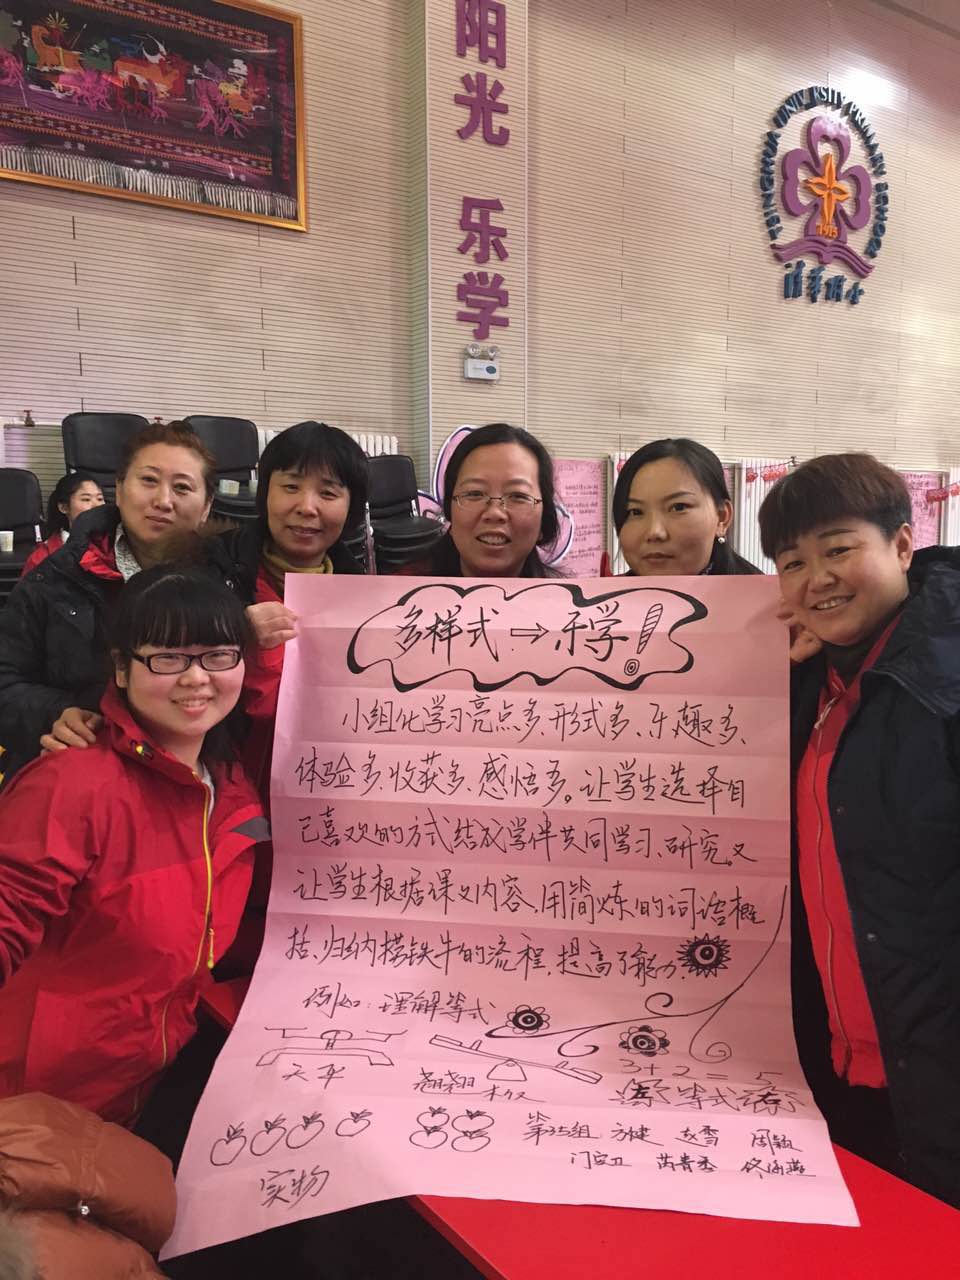 阳光 乐学
TSINGHUA UNIVERSITY PRIMARY SCHOOL
1915
清华附小
多样式⇨乐学!
小组化学习亮点多、形式多、乐趣多、
体验多、收获多、感悟多。让学生选择自
己喜欢的方式结成学伴共同学习、研究。又
让学生根据课文内容,用简炼的词语概
括、归纳捞铁牛的流程,提高了能力.
例如:理解等式
3+2=5
天平
木板
等式
第35组 方健 赵雪 周颖
门宝卫 芮青秀
实物